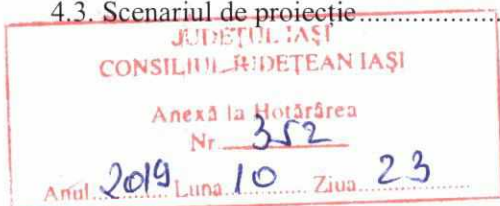 4.3. Scenariul de proiecție....................
JUDEȚUL IAȘI
CONSILIUL JUDEȚEAN IAȘI
Anexă la Hotărârea
Nr. 352
Anul 2019 Luna 10 Ziua 23